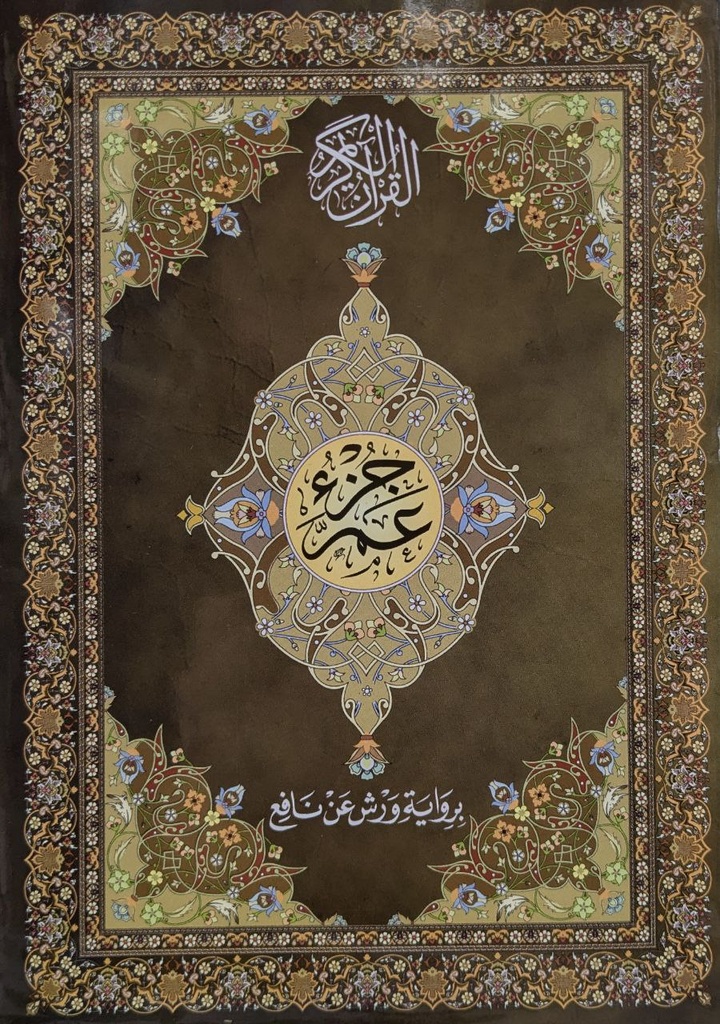 القرآن الكريم
جزء
عم
برواية ورش عن نافع